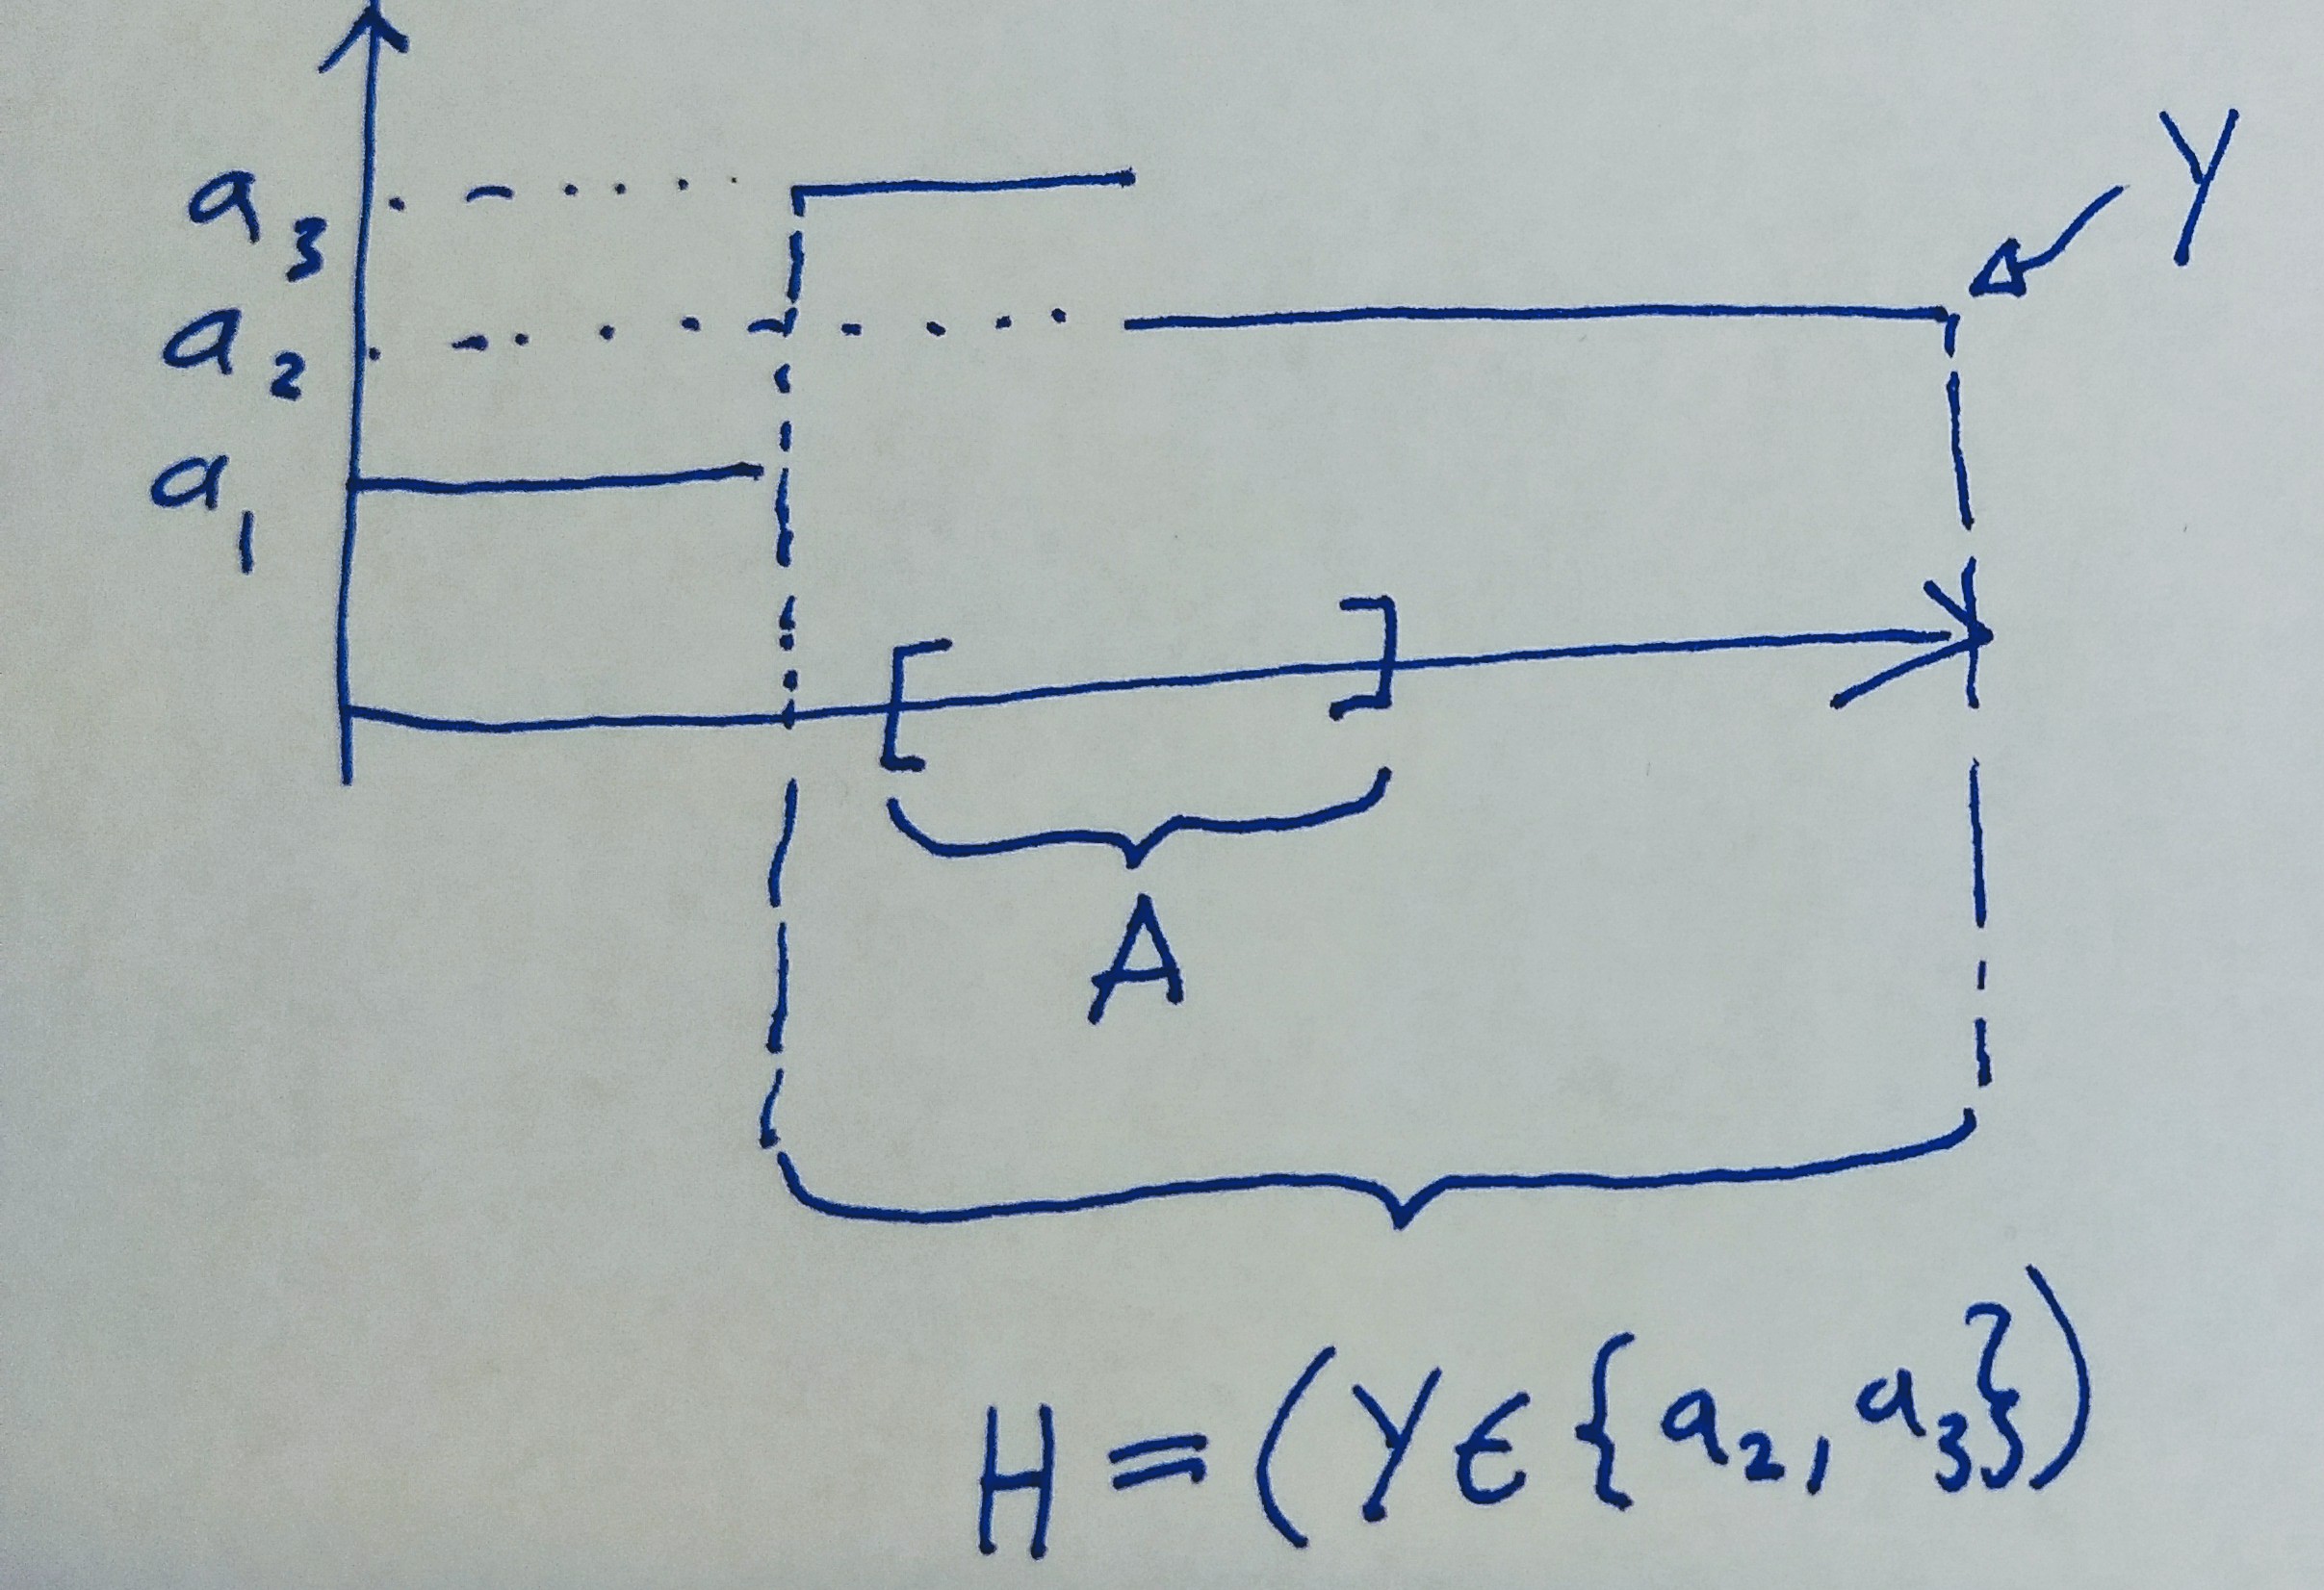 Y
a₃
a₂
a₁
A
H = (Y ∈ {a₂, a₃})